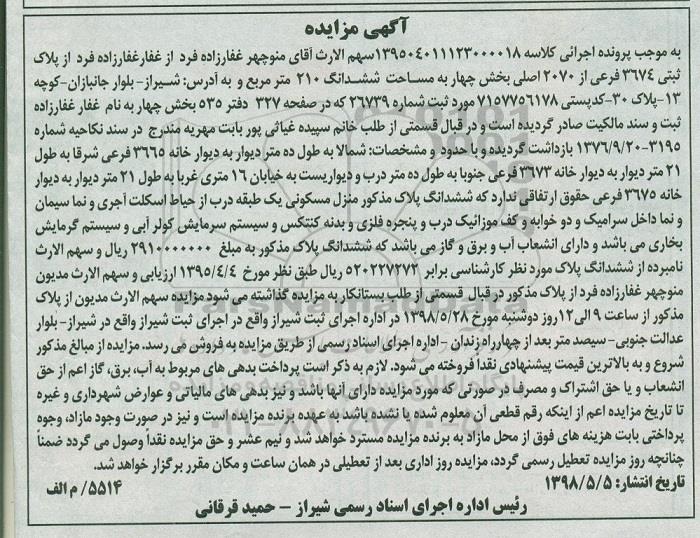 آگهی مزایده
به موجب پرونده اجرائی کلاسه ۱۳۹۵۰۴۰۱۱۱۲۳۰۰۰۰۱۸سهم الارث آقای منوچهر غفارزاده فرد از غفارغفارزاده فرد از پلاک
ثبتی ۳۶۷۴ فرعی از ۲۰۷۰ اصلی بخش چهار به مساحت ششدانگ ۲۱۰ متر مربع و به آدرس: شیراز- بلوار جانبازان-کوچه
۱۳-پلاک ۳۰-کدپستی ۷۱۵۷۷۵۶۱۷۸ مورد ثبت شماره ۲۶۷۳۹ که در صفحه ۳۲۷ دفتر ۵۳۵ بخش چهار به نام غفار غفارزاده
ثبت و سند مالکیت صادر گردیده است و در قبال قسمتی از طلب خانم سپیده غیاثی پور بابت مهریه مندرج در سند نکاحیه شماره
۳۱۹۵-۱۳۷۶/۹/۲۰ بازداشت گردیده و با حدود و مشخصات: شمالا به طول ده متر دیوار به دیوار خانه ۳۶۶۵ فرعی شرقا به طول
۲۱ متر دیوار به دیوار خانه ۳۶۷۳ فرعی جنوبا به طول ده متر درب و دیواریست به خیابان ۱۶ متری غربا به طول ۲۱ متر دیوار به دیوار
خانه ۳۶۷۵ فرعی حقوق ارتفاقی ندارد که ششدانگ پلاک مذکور منزل مسکونی یک طبقه درب از حیاط اسکلت آجری و نما سیمان
و نما داخل سرامیک و دو خوابه و کف موزائیک درب و پنجره فلزی و بدنه کنتکس و سیستم سرمایش کولر آبی و سیستم گرمایش
بخاری می باشد و دارای انشعاب آب و برق و گاز می باشد که ششدانگ پلاک مذکور به مبلغ ۲۹۱۰۰۰۰۰۰۰ ریال و سهم الارث
نامبرده از ششدانگ پلاک مورد نظر کارشناسی برابر ۵۲۰۲۲۷۲۷۲ ریال طبق نظر مورخ ۱۳۹۵/۴/۴ ارزیابی و سهم الارث مدیون
منوچهر غفارزاده فرد از پلاک مذکور در قبال قسمتی از طلب بستانکار به مزایده گذاشته می شود مزایده سهم الارث مدیون از پلاک
مذکور از ساعت ۹ الی۱۲ روز دوشنبه مورخ ۱۳۹۸/۵/۲۸ در اداره اجرای ثبت شیراز واقع در اجرای ثبت شیراز واقع در شیراز- بلوار
عدالت جنوبی-سیصد متر بعد از چهارراه زندان -اداره اجرای اسناد رسمی از طریق مزایده به فروش می رسد. مزایده از مبالغ مذکور
شروع و به بالاترین قیمت پیشنهادی نقدا فروخته می شود. لازم به ذکر است پرداخت بدهی های مربوط به آب، برق، گاز اعم از حق
انشعاب و یا حق اشتراک و مصرف در صورتی که مورد مزایده دارای آنها باشد و نیز بدهی های مالیاتی و عوارض شهرداری و غیره
تا تاریخ مزایده اعم از اینکه رقم قطعی آن معلوم شده یا نشده باشد به عهده برنده مزایده است و نیز در صورت وجود مازاد، وجوه
پرداختی بابت هزینه های فوق از محل مازاد به برنده مزایده مسترد خواهد شد و نیم عشر و حق مزایده نقدا وصول می گردد ضمناً
چنانچه روز مزایده تعطیل رسمی گردد، مزایده روز اداری بعد از تعطیلی در همان ساعت و مکان مقرر برگزار خواهد شد.
تاریخ انتشار: ۱۳۹۸/۵/۵
۵۵۱۴/ م الف
رئیس اداره اجرای اسناد رسمی شیراز - حمید قرقانی